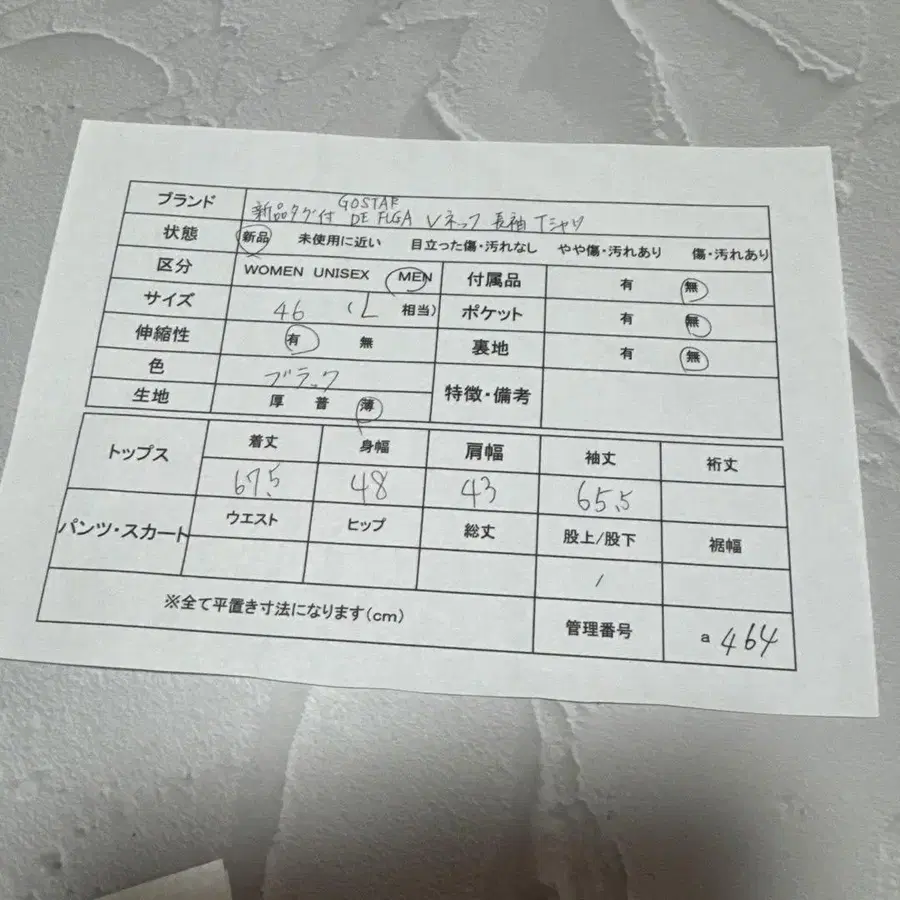 ブランド 新品タグ付 GOSTAR DE FUGA Vネック 長袖 Tシャツ
状態 新品 未使用に近い 目立った傷・汚れなし やや傷・汚れあり 傷・汚れあり
区分 WOMEN UNISEX MEN 付属品 有 無
サイズ 46 (L 相当) ポケット 有 無
伸縮性 有 無 裏地 有 無
色 ブラック 特徴・備考
生地 厚 普 薄
トップス 着丈 身幅 肩幅 袖丈 裄丈
67.5 48 43 65.5
パンツ・スカート ウエスト ヒップ 総丈 股上/股下 裾幅
/
※全て平置き寸法になります(cm) 管理番号 a 464